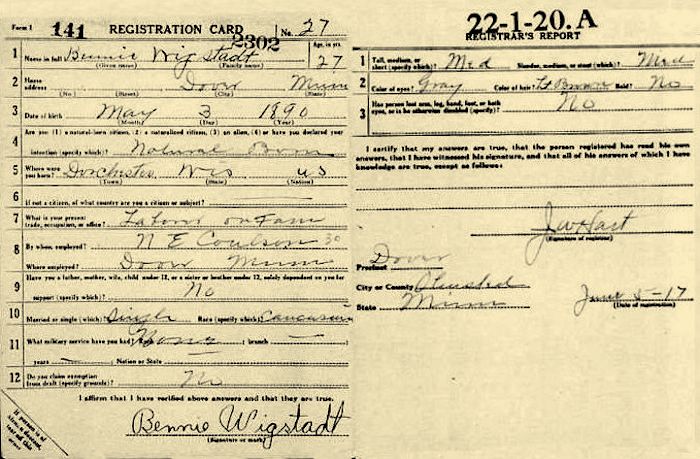 Form 1 141 REGISTRATION CARD No. 27
2302
1 Name in full Bennie Wigstadt Age, in yrs. 27
(Given name) (Family name)
2 Home address Dover Minn
(No.) (Street) (City) (State)
3 Date of birth May 3 1890
(Month) (Day) (Year)
4 Are you (1) a natural-born citizen, (2) a naturalized citizen, (3) an alien, (4) or have you declared your
intention (specify which)? Natural Born
5 Where were you born? Dorchester Wis US
(Town) (State) (Nation)
6 If not a citizen, of what country are you a citizen or subject?
7 What is your present trade, occupation, or office? Labour on Farm
8 By whom employed? N E Coulson 30
Where employed? Dover Minn
9 Have you a father, mother, wife, child under 12, or a sister or brother under 12, solely dependent on you for
support (specify which)? No
10 Married or single (which)? Single Race (specify which)? Caucasian
11 What military service have you had? Rank None ; branch —
years — ; Nation or State —
12 Do you claim exemption from draft (specify grounds)? No
I affirm that I have verified above answers and that they are true.
Bennie Wigstadt
(Signature or mark)
If person is of African descent, tear off this corner
22-1-20. A
REGISTRAR'S REPORT
1 Tall, medium, or short (specify which)? Med Slender, medium, or stout (which)? Med
2 Color of eyes? Gray Color of hair? Lt Brown Bald? No
3 Has person lost arm, leg, hand, foot, or both eyes, or is he otherwise disabled (specify)? No
I certify that my answers are true, that the person registered has read his own
answers, that I have witnessed his signature, and that all of his answers of which I have
knowledge are true, except as follows:
(Signature of registrar)
Precinct Dover
City or County Olmsted
State Minn
June 5-17
(Date of registration)